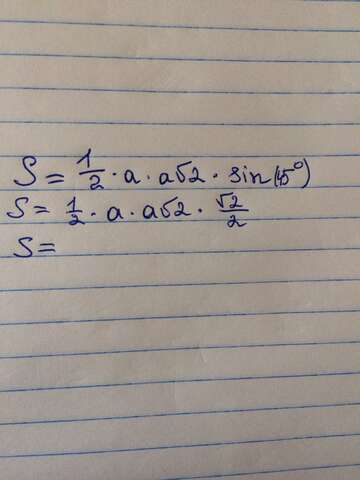 S = 1/2 · a · a√2 · sin(45°)
S = 1/2 · a · a√2 · √2/2
S =